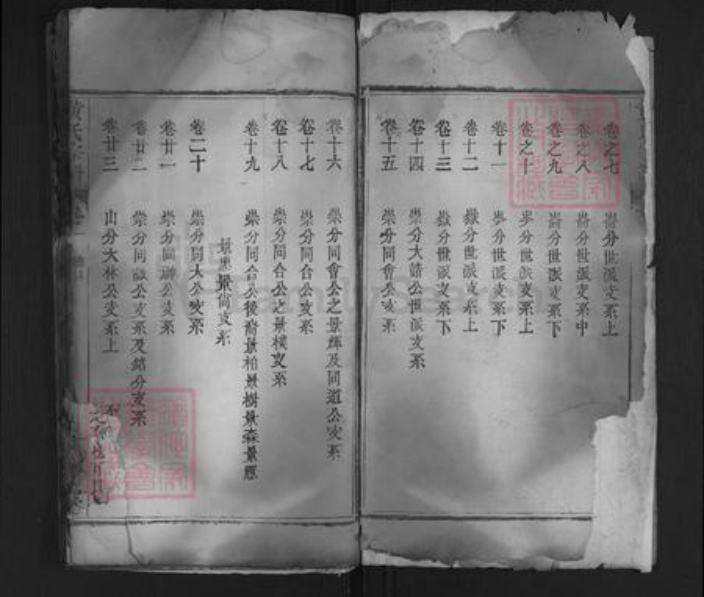 卷之七 嵩分世派支系上
卷之八 嵩分世派支系中
卷之九 嵩分世派支系下
卷之十 步分世派支系上
卷十一 步分世派支系下
卷十二 嶽分世派支系上
卷十三 嶽分世派支系下
卷十四 崇分大請公世派支系
卷十五 崇分同會公支系
卷十六 崇分同會公之景輝及同道公支系
卷十七 崇分同合公支系
卷十八 崇分同合公之景樸支系
卷十九 崇分同合公後裔景柏景樹景森景
景 景尚支系
卷二十 崇分同大公支系
卷廿一 崇分同 公支系
卷廿二 崇分同 公支系及銘分支系
卷廿三 山分大林公支系上
黃氏宗
FamilySearch